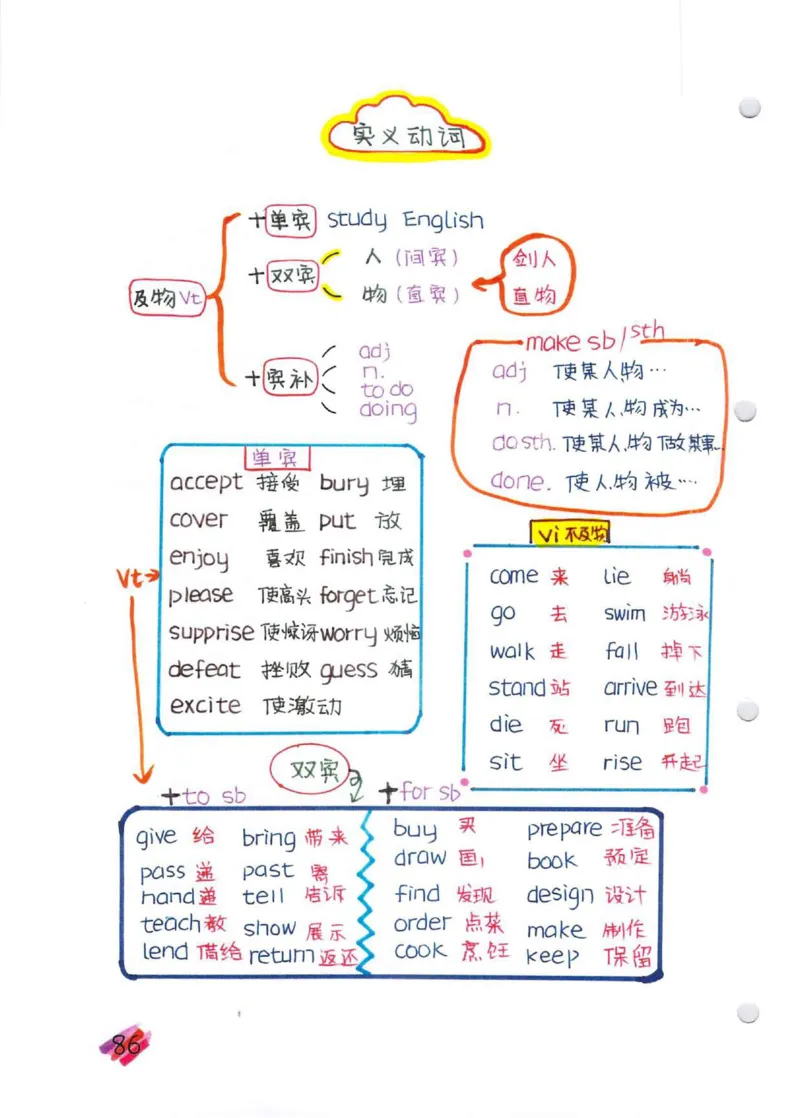 实义动词
+单宾 study English
+双宾 人(间宾)
物(直宾)
剑人
直物
及物Vt
+宾补 adj
n.
to do
doing
make sb/sth
adj 使某人/物…
n. 使某人/物成为…
do sth. 使某人/物做某事…
done. 使人/物被…
单宾
accept 接受 bury 埋
cover 覆盖 put 放
enjoy 喜欢 finish 完成
Vt
please 使高兴 forget 忘记
supprise 使惊讶 worry 烦恼
defeat 挫败 guess 猜
excite 使激动
Vi 不及物
come 来 lie 躺
go 去 swim 游泳
walk 走 fall 掉下
stand 站 arrive 到达
die 死 run 跑
sit 坐 rise 升起
双宾
+to sb +for sb
give 给 bring 带来
pass 递 past 寄
hand 递 tell 告诉
teach 教 show 展示
lend 借给 return 返还
buy 买 prepare 准备
draw 画 book 预定
find 发现 design 设计
order 点菜 make 制作
cook 烹饪 keep 保留
86